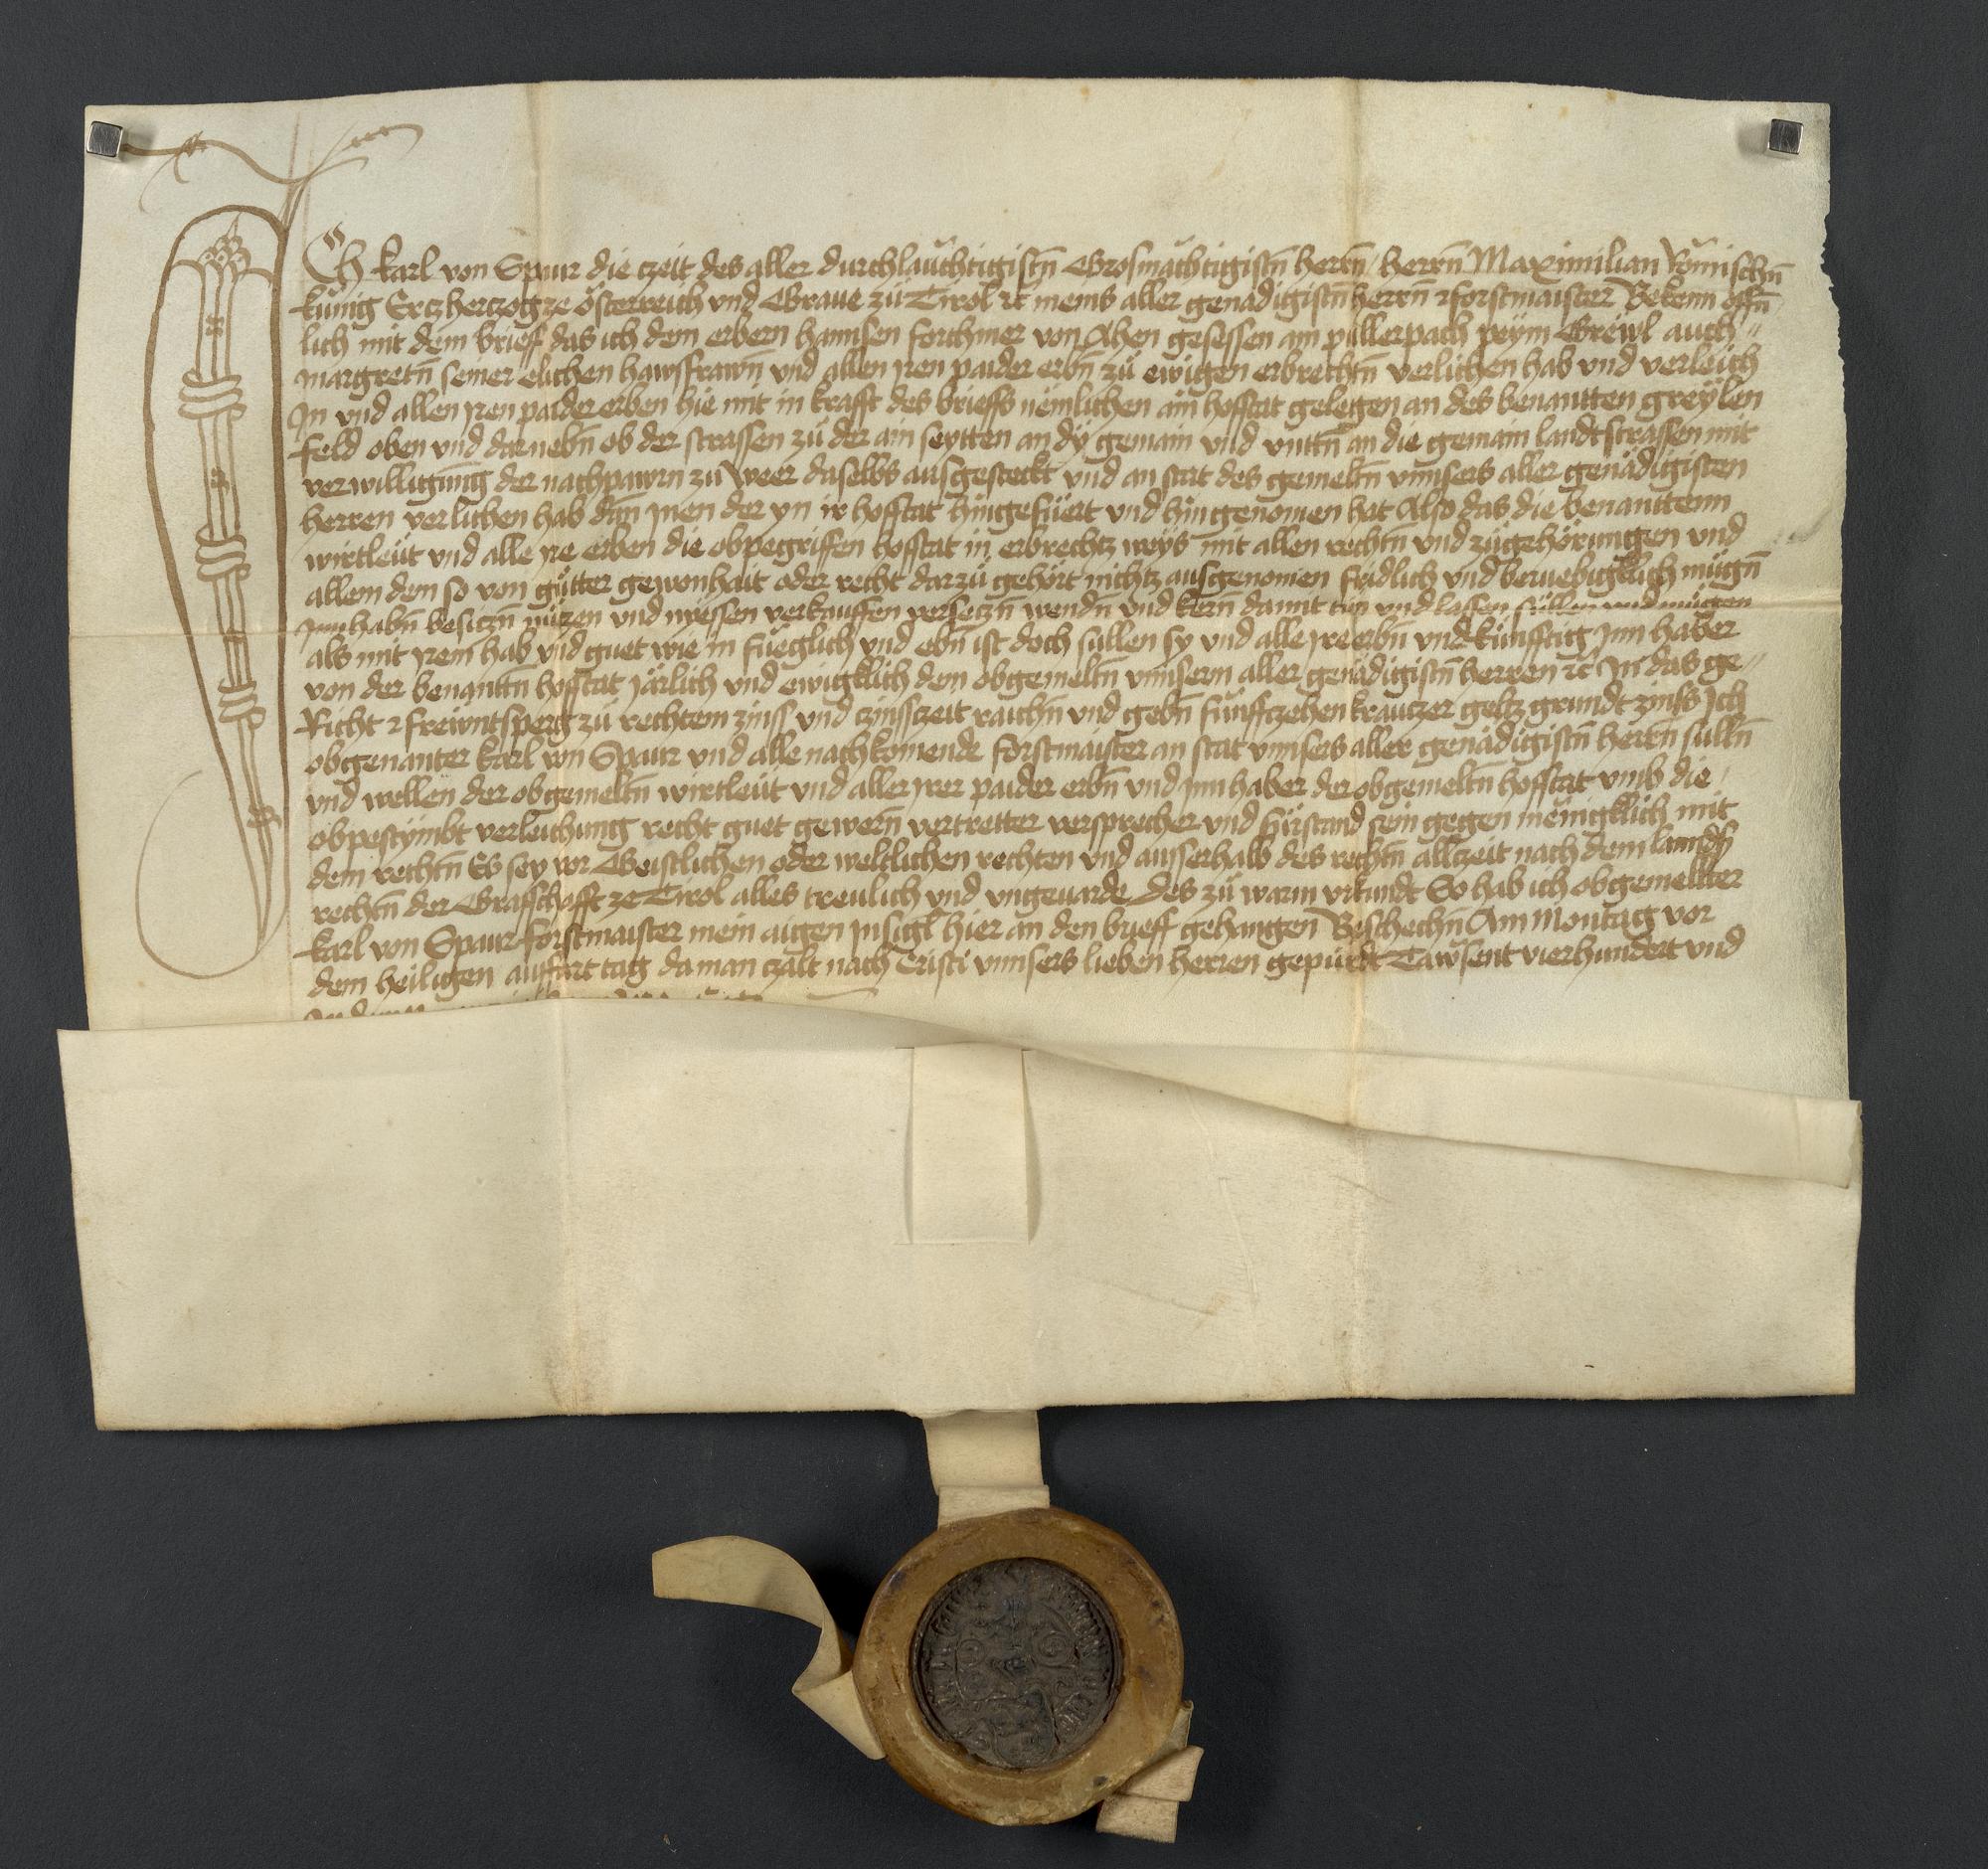 Ich karl von Spaur die czeit des aller durchlauchtigistn̄ Grosmächtigistn̄ herrn̄ / herrn̄ Maximilian Römischn̄
künig Ertzhertzog ze österreich vnd Graue zu Tirol ꝛc meins aller genadigistn̄ herrn̄ ꝛ forstmaister Bekenn offn̄
lich mit dem brieff das ich dem erbern hannsen forchner von Ahen gesessen am pillerpach peym Grewl auch
margretn̄ seiner elichen hawsfrawn̄ vnd allen Iren paider erbn̄ zu ewigen erbrechtn̄ verlichen hab vnd verleich
In vnd allen Iren paider erben hie mit in krafft des brieffs nemlichen ain hofstat gelegen an des benantten greylen
feld oben vnd darnebn̄ ob der strassen zu der ain seytten an dy gemain vnd vnttn̄ an die gemain landtstrassen mit
verwilligung der nachpawrn zu Weer daselbs ausgesteckt vnd an stat des gemeltn̄ vnnsers aller genädigisten
herren verlichen hab dan̄ Inen der yn ir hofstat hingefüert vnd hingenomen hat Also das die benanttenn
wirtleut vnd alle Ire erben die obpegriffen hofstat in erbrechtz weys mit allen rechtn̄ vnd zugehörungen vnd
allem dem so von gutter gewonhait oder recht darzu gehört nichtz ausgenomen fridlich vnd beruebigklich mügn̄
Innhabn̄ besitzn̄ nützen vnd niessen verkauffen versetzn̄ wendn̄ vnd kern̄ damit tun vnd lassen süllen vnd mügen
als mit Irem hab vnd guet wie in füeglich vnd ebn̄ ist doch sullen sy vnd alle Ire erbn̄ vnd künfftig Inn haber
von der benantn̄ hofstat järlich vnd ewigklich dem obgemeltn̄ vnnserm aller genädigistn̄ herren ꝛc In das ge
Richt ꝛ frewntsperg zu rechtem zinss vnd czinsczeit raichn̄ vnd gebn̄ funffczehen krautzer geltz grundt zinss Ich
obgenanter karl von Spaur vnd alle nachkomende forstmaister an stat vnnsers aller genädigistn̄ herrn̄ sülln̄
vnd wellen der obgemeltn̄ wirtleut vnd aller Irer paider erbn̄ vnd Innhaber der obgemeltn̄ hofstat vmb die
obpestymbt verleichung recht guet gewern̄ vertretter versprecher vnd fürstand sein gegen menigklich mit
dem rechtn̄ Es sey vor Geistlichen oder weltlichen rechten vnd ausserhalb des rechtn̄ allzeit nach dem lanndß
rechtn̄ der Graffschafft ze Tirol alles treulich vnd vngeuarde des zu warm vrkundt So hab ich obgemelter
karl von Spaur forstmaister mein aigen Insigl hier an den brieff gehangen Beschechn̄ Am Montag vor
dem heiligen auffart tag da man czalt nach Cristi vnnsers lieben herren gepurdt Tawsent vierhundert vnd